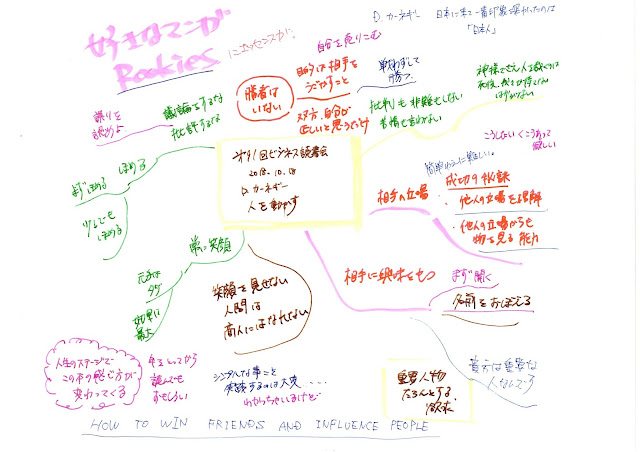 好きなマンガ
Rookies
にエッセンスが!
自分を売りこむ
D. カーネギー 日本に来て一番印象深かったのは
「日本人」
勝者は
いない
目的は相手を
うごかすこと
戦わずして
勝つ
双方、自分が
正しいと思うだけ
批判も非難もしない
苦情も言わない
神様でさえ
議論をするな
批評するな
誤りを
認めよ
ほめる
まずほめる
少しでも
ほめる
第91回ビジネス読書会
2018.10.18
D. カーネギー
人を動かす
こうしないくこうあって
欲しい
簡単なように難しい。
相手の立場
成功の秘訣
・他人の立場を理解
・他人の立場からも
物を見る能力
相手に興味をもつ
まず聞く
名前をおぼえる
常に笑顔
元手は
タダ
効果は
最大
笑顔を見せない
人間は
商人にはなれない
人生のステージで
この本の感じ方が
変わってくる
年をとってから
読んでも
おもしろい
シンプルな事こと
実践するのは大変・・・
わかっちゃいるけど
重要人物
たらんとする
欲求
貴方は重要な
人なんです
HOW TO WIN FRIENDS AND INFLUENCE PEOPLE